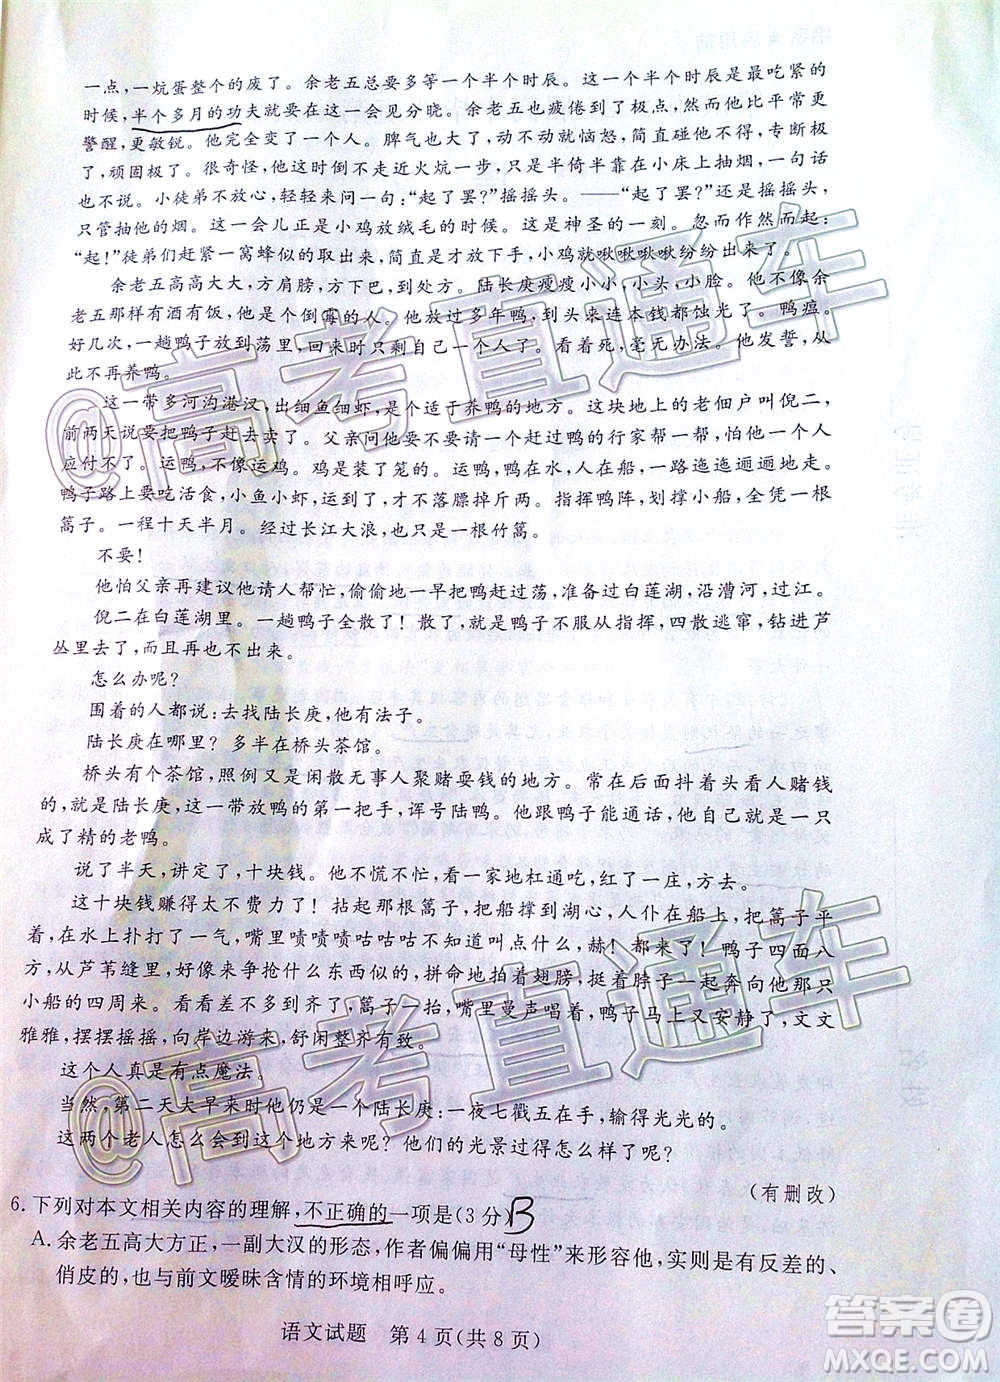 一点,一炕蛋整个的废了。余老五总要多等一个半个时辰。这一个半个时辰是最吃紧的
时候,半个多月的功夫就要在这一会见分晓。余老五也疲倦到了极点,然而他比平常更
警醒,更敏锐。他完全变了一个人。脾气也大了,动不动就恼怒,简直碰他不得,专断极
了,顽固极了。很奇怪,他这时倒不走近火炕一步,只是半倚半靠在小床上抽烟,一句话
也不说。小徒弟不放心,轻轻来问一句:“起了罢?”摇摇头。——“起了罢?”还是摇摇头,
只管抽他的烟。这一会儿正是小鸡放绒毛的时候。这是神圣的一刻。忽而作然而起:
“起!”徒弟们赶紧一窝蜂似的取出来,简直是才放下手,小鸡就啾啾啾啾纷纷出来了。
余老五高高大大,方肩膀,方下巴,到处方。陆长庚瘦瘦小小,小头,小脸。余
老五那样有酒有饭,他是个倒霉的人。他放过多年鸭,到头来连本钱都蚀光了。鸭瘟。
好几次,一趟鸭子放到荡里,回来时只剩自己一个人了。看着死,毫无办法。他发誓,从
此不再养鸭。
这一带多河沟港汊,出细鱼细虾,是个适于养鸭的地方。这块地上的老佃户叫倪二,
前两天说要把鸭子赶去卖了。父亲问他要不要请个赶鸭的行家帮一帮,怕他一个人
应付不了。运鸭,不像运鸡。鸡是装了笼的。运鸭,鸭在水,人在船,一路迤迤逦逦地走。
鸭子路上要吃活食,小鱼小虾,运到了,才不落膘掉斤两。指挥鸭阵,划撑小船,全凭一根
篙子。一程十天半月。经过长江大浪,也只是一根竹篙。
不要!
他怕父亲再建议他请人帮忙,偷偷地一早把鸭赶过荡,准备过白莲湖,沿漕河,过江。
倪二在白莲湖里。一趟鸭子全散了!散了,就是鸭子不服从指挥,四散逃窜,钻进芦
丛里去了,而且再不出来。
怎么办呢?
围着的人都说:去找陆长庚,他有法子。
陆长庚在哪里?多半在桥头茶馆。
桥头有个茶馆,照例又是闲散无事人聚赌耍钱的地方。常在后面抖着头看人赌钱
的,就是陆长庚,这一带放鸭的第一把手,诨号陆鸭。他跟鸭子能通话,他自己就是一只
成了精的老鸭。
说了半天,讲定了,十块钱。他不慌不忙,看一家地杠通吃,红了一庄,方去。
这十块钱赚得太不费力了!拈起那根篙子,把船撑到湖心,人仆在船上,把篙子平
着,在水上扑打了一气,嘴里啧啧啧咕咕咕不知道叫点什么,赫!都来了!鸭子四面八
方,从芦苇缝里,好像来争抢什么东西似的,拼命地拍着翅膀,挺着脖子一起奔向他那只
小船的四周来。看看差不多到齐了,篙子一抬,嘴里曼声唱着,鸭子马上又安静了,文文
雅雅,摆摆摇摇,向岸边游来,舒闲整齐有致。
这个人真是有点魔法。
当然,第二天大早来时他仍是一个陆长庚:一夜七戳五在手,输得光光的。
这两个老人怎么会到这个地方来呢?他们的光景过得怎么样了呢?
(有删改)
6.下列对本文相关内容的理解,不正确的一项是(3分)B
A.余老五高大方正,一副大汉的形态,作者偏偏用“母性”来形容他,实则是有反差的、
俏皮的,也与前文暧昧含情的环境相呼应。
语文试题 第4页(共8页)
@高考直通车
@高考直通车
答案圈
MXQE.COM